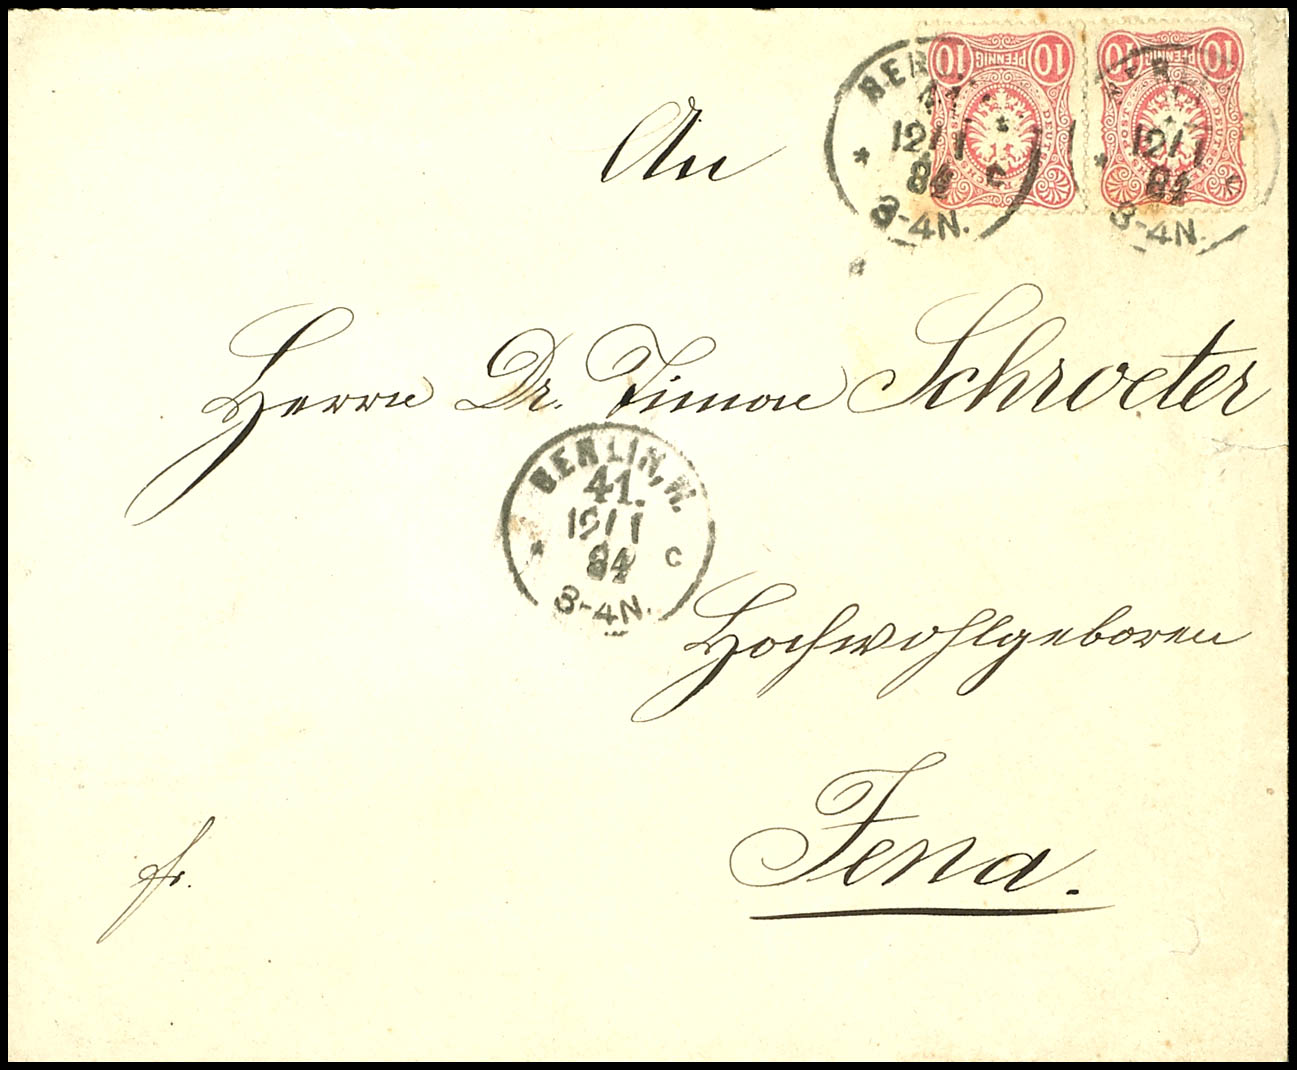 10 PFENNIG 10
10 PFENNIG 10
DEUTSCHE
An
BERL
12/1
84
C
3-4N.
12/1
84
3-4N.
Herrn Dr. Timon Schroeter
BERLIN, W.
41.
12/1
84
C
3-4N.
Hochwohlgeboren
Jena.
fr.